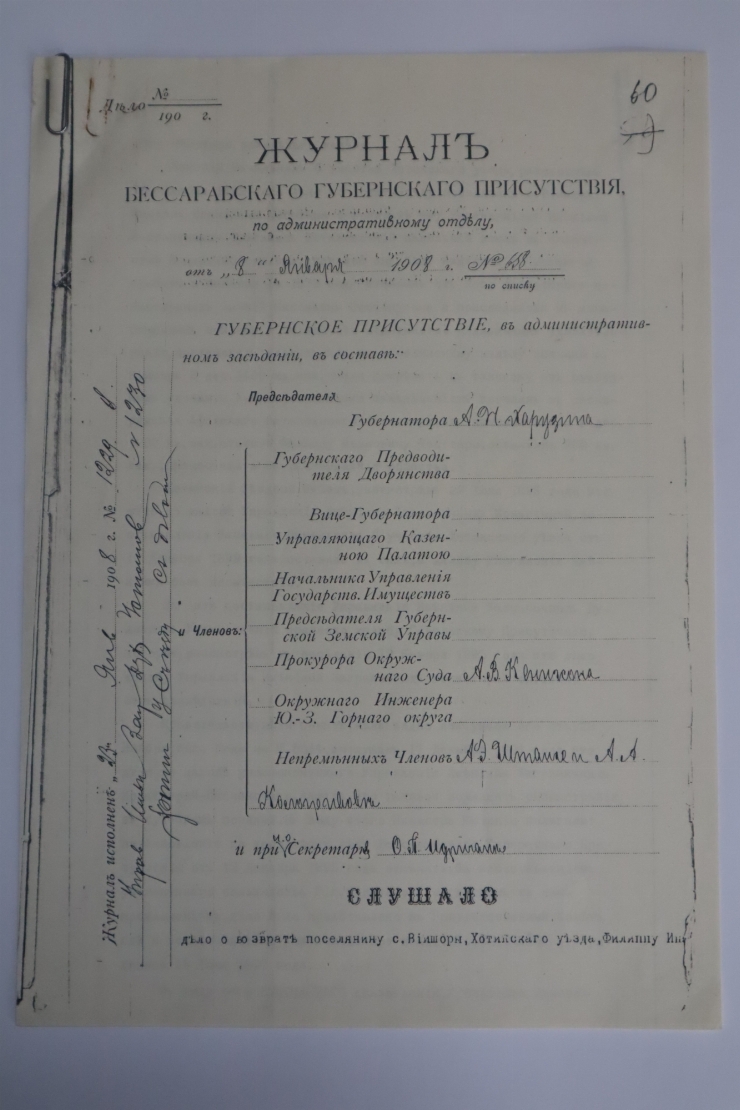 Дѣло №
190 г.
60
ЖУРНАЛЪ
БЕССАРАБСКАГО ГУБЕРНСКАГО ПРИСУТСТВІЯ,
по административному отдѣлу,
отъ „8" Января 1908 г. № 658
по списку
ГУБЕРНСКОЕ ПРИСУТСТВІЕ, въ административ-
номъ засѣданіи, въ составѣ:
Предсѣдателя
Губернатора А. Н. Харузина
и Членовъ:
Губернскаго Предводи-
теля Дворянства
Вице-Губернатора
Управляющаго Казен-
ною Палатою
Начальника Управленія
Государств. Имуществъ
Предсѣдателя Губерн-
ской Земской Управы
Прокурора Окруж-
наго Суда А. В.
Окружнаго Инженера
Ю.-З. Горнаго округа
Непремѣнныхъ Членовъ А. А.
и при и.о. Секретарѣ О. П.
СЛУШАЛО
дѣло о возвратѣ поселянину с. Вишоры, Хотинскаго уѣзда, Филиппу
Журналъ исполненъ „23 Янв 1908 г. № 1229
№ 1230